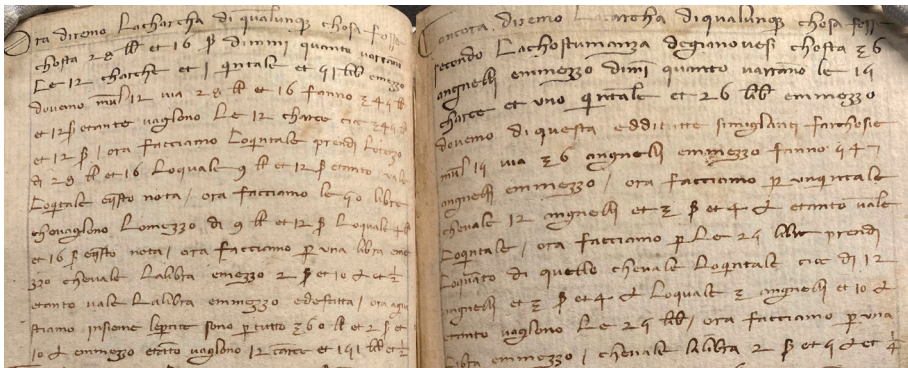 Ora diremo Lacharcha di qualunqꝫ chosa fosse
chosta 28 ℔ et 16 ẞ dimmi quanto varranno
Le 12 charche et 1 qintale et 51 lbb emezzo
doveno mul 12 via 28 ℔ et 16 fanno 345 ℔
et 12 ẞ etante vagliono Le 12 charce cioe 345 ℔
et 12 ẞ / ora facciamo Loqintale prendi Lo
di 28 ℔ et 16 Loquale 9 ℔ et 12 ẞ etanto vale
Loqitale eqsto nota / ora facciamo le 50 libre
chevagliono Lomezzo di 9 ℔ et 12 ẞ Loquale 4 ℔
et 16 ẞ eqsto nota / ora facciamo ꝑ una libra eme
zzo chevale Lalibra emezzo 2 ẞ et 10 ₰ et ½
etanto vale Lalibra emmezzo edefatta / ora agiu
stiamo insieme leptite sono ꝑ tutto 360 ℔ et 2 ẞ et
10 ₰ emmezzo etato vagliono 12 carce et 151 lbb et ½
Ancora diremo Lacarcha di qualunqꝫ chosa fosse
secondo Lachostumanza degianovesi chosta 36
angnelli emmezzo dimi quanto varrano le 15
charce et uno qintale et 26 lbb emmezzo
dovemo di questa eddi tutte simiglianti farchosie
mul 15 via 36 angnelli emmezzo fanno 547
angnelli emmezzo / ora facciamo ꝑ unqintale
chevale 12 angnelli et 3 ẞ et 4 ₰ etanto vale
Loqintale / ora facciamo ꝑ Le 25 libre prendi
Loquarto di quello chevale Loqintale cioe di 12
angnelli et 3 ẞ et 4 ₰ Loquale 3 angnelli et 10 ₰
etanto vagliono Le 25 lbb / ora facciamo ꝑ una
Libra emmezzo / chevale lalibra 2 ẞ et 5 ₰ et ¼